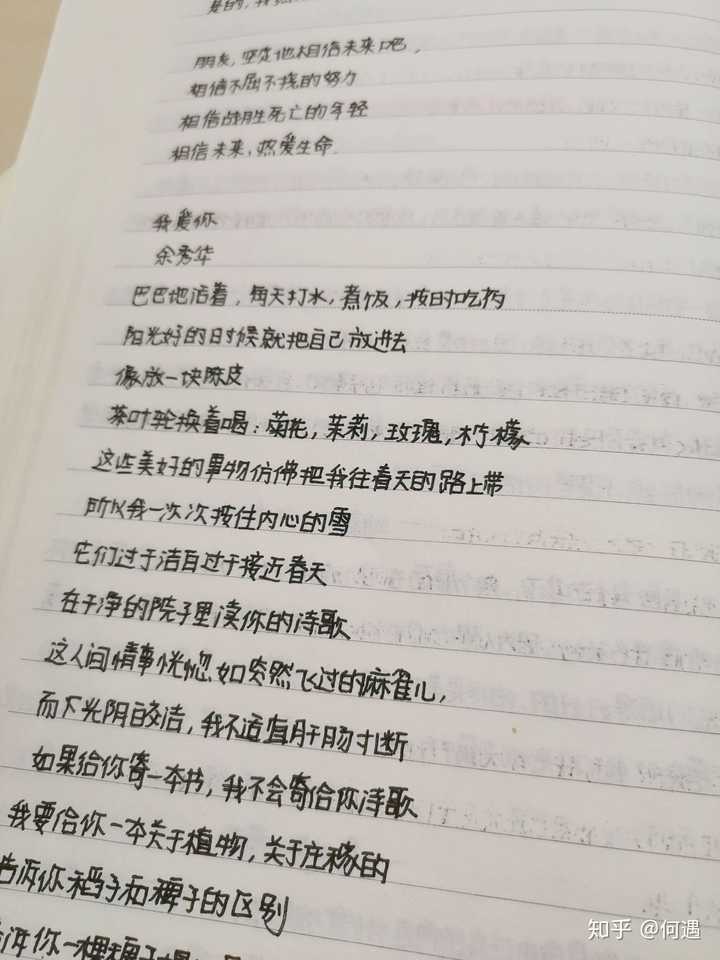 是的,我
朋友,坚定地相信未来吧,
相信不屈不挠的努力
相信战胜死亡的年轻
相信未来,热爱生命.
我爱你
余秀华
巴巴地活着,每天打水,煮饭,按时吃药
阳光好的日时候就把自己放进去
像放一块陈皮
茶叶轮换着喝:菊花,茉莉,玫瑰,柠檬
这些美好的事物仿佛把我往春天的路上带
所以我一次次按住内心的雪
它们过于洁白过于接近春天
在干净的院子里读你的诗歌
这人间情事恍惚如突然飞过的麻雀儿,
而下光阴皎洁,我不适宜肝肠寸断
如果给你寄一本书,我不会寄给你诗歌
我要给你一本关于植物,关于庄稼的
告诉你稻子和稗子的区别
告诉你一棵稗子提
知乎 @何遇